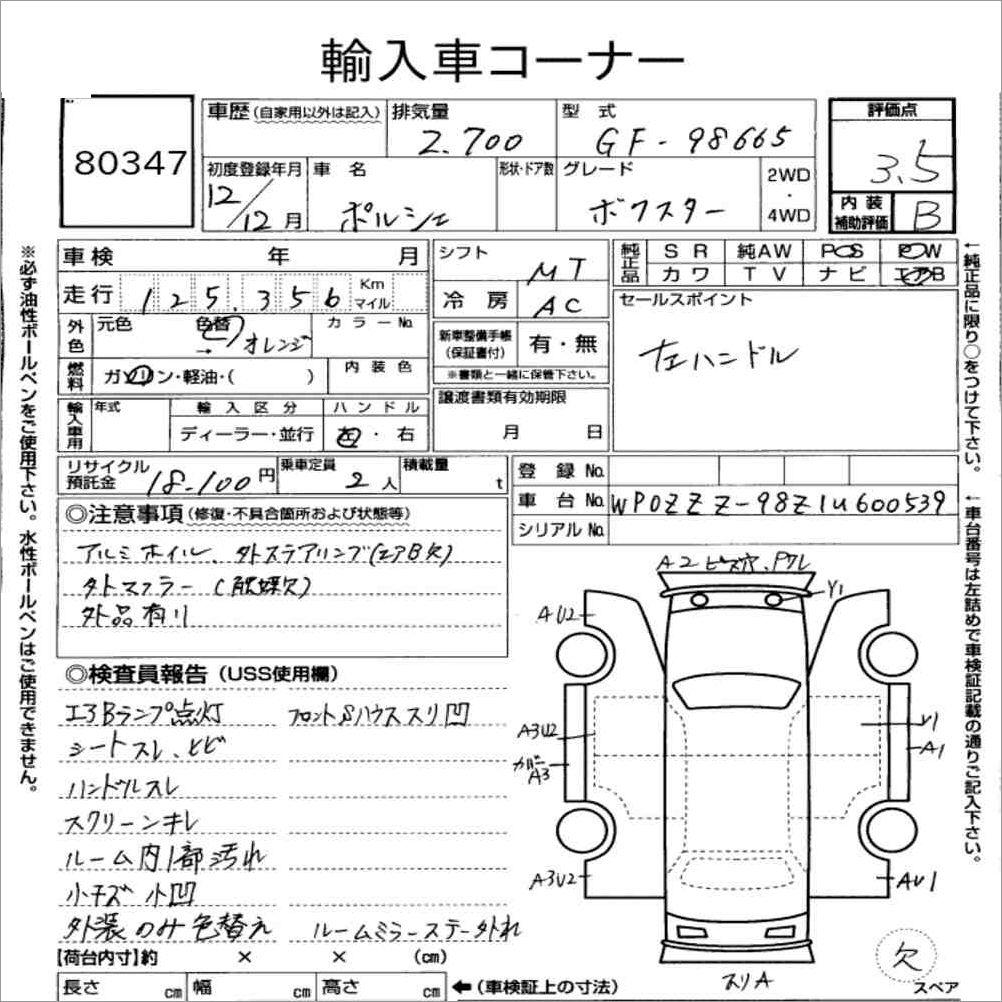 輸入車コーナー
80347
車歴(自家用以外は記入)
排気量
2.700
型 式
GF-98665
評価点
3.5
初度登録年月
12/12月
車 名
ポルシェ
形状・ドア数
グレード
ボクスター
2WD
・
4WD
内 装
補助評価
B
車検 年 月
走行 125,356 Km マイル
シフト
MT
冷 房
AC
純正品
SR 純AW POS POW
カワ TV ナビ エアB
セールスポイント
左ハンドル
外色
元色
色替
→オレンジ
カラーNo.
新車整備手帳
(保証書付)
有・無
※書類と一緒に保管下さい。
燃料
ガソリン・軽油・( )
内 装 色
輸入車用
年式
輸 入 区 分
ハ ン ド ル
ディーラー・並行
左・右
譲渡書類有効期限
月 日
リサイクル
預託金
18.100円
乗車定員
2人
積載量
t
登 録 No.
車 台 No. WP0ZZZ-98Z1U600539
シリアル No.
◎注意事項(修復・不具合箇所および状態等)
アルミホイル、外ステアリング(エアB欠)
外マフラー(触媒欠)
外品有り
◎検査員報告(USS使用欄)
エアBランプ点灯
フロントSハウススリ凹
シートスレ、ヒビ
ハンドルスレ
スクリーンキレ
ルーム内1部汚れ
小キズ小凹
外装のみ色替え
ルームミラーステー外れ
【荷台内寸】約 × × (cm)
長さ cm 幅 cm 高さ cm
←(車検証上の寸法)
A2ビス穴、Pワレ
Y1
AU2
A3U2
カバーA3
A3U2
Y1
A1
AU1
スリA
欠
スペア
※必ず油性ボールペンをご使用下さい。水性ボールペンはご使用できません。
←純正品に限り○をつけて下さい。
←車台番号は左詰めで車検証記載の通りご記入下さい。